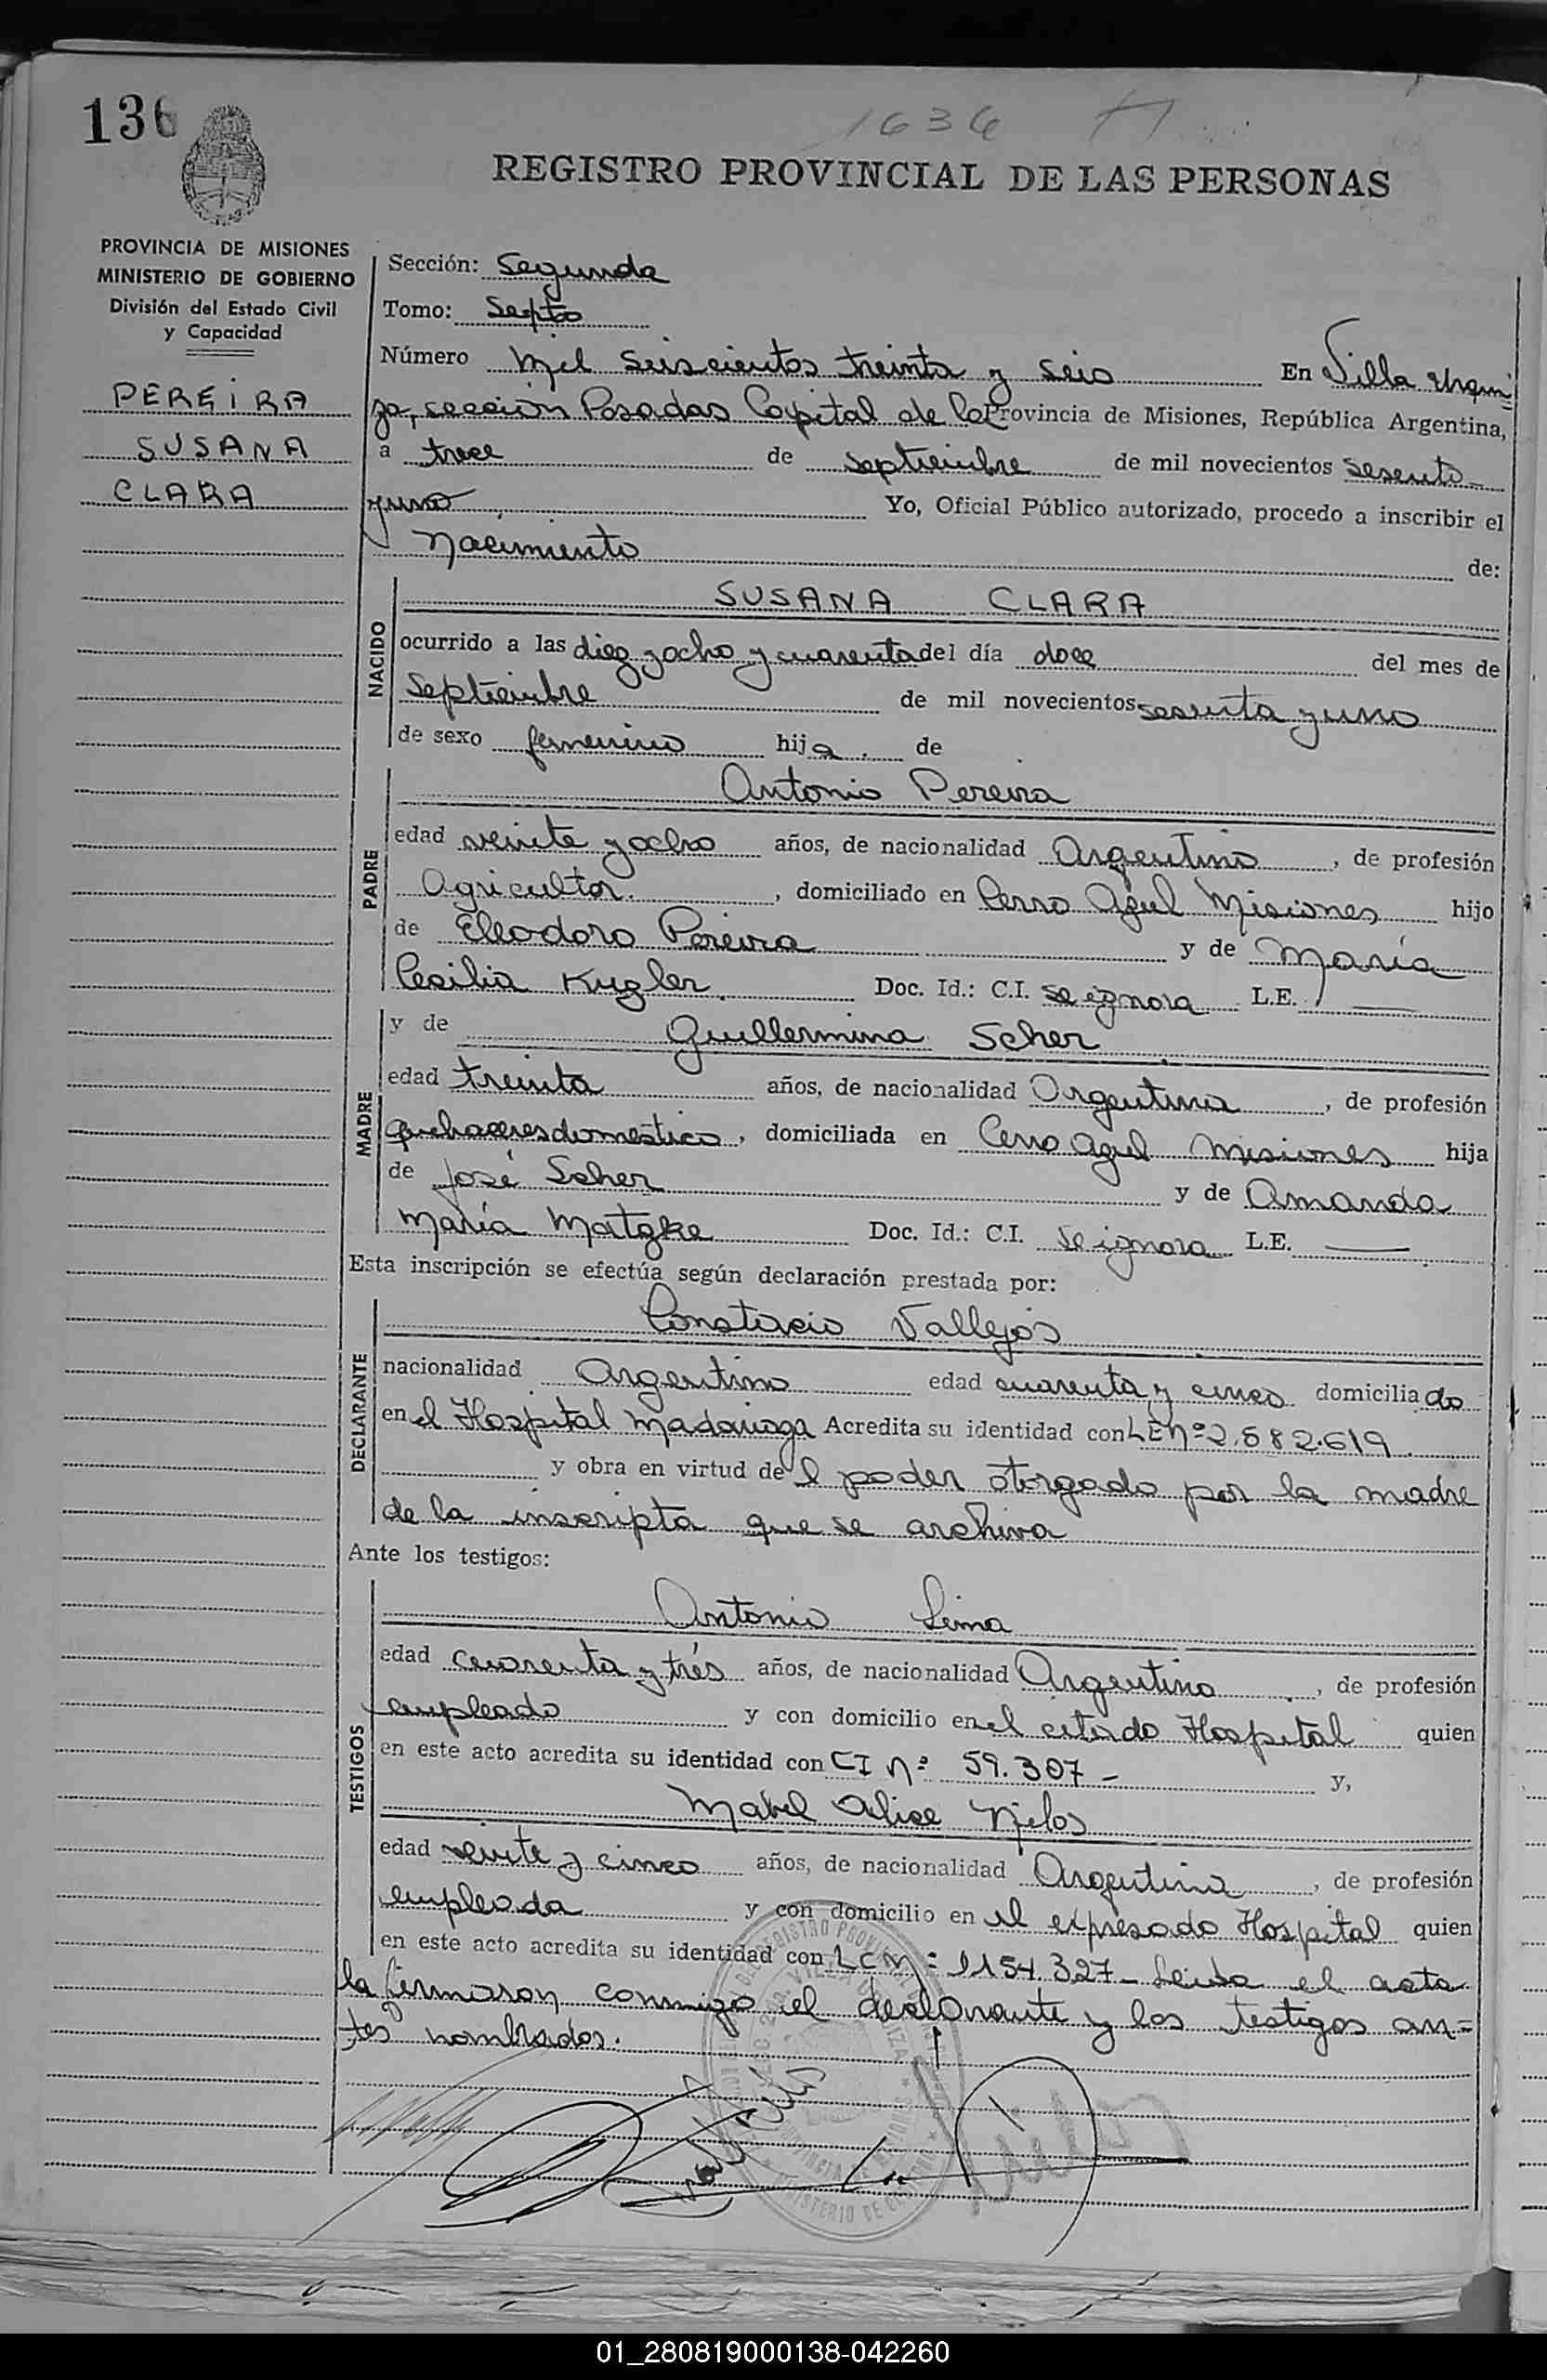 136
1636
REGISTRO PROVINCIAL DE LAS PERSONAS
PROVINCIA DE MISIONES
MINISTERIO DE GOBIERNO
División del Estado Civil
y Capacidad
PEREIRA
SUSANA
CLARA
Sección: Segunda
Tomo: Septo
Número Mil Seiscientos treinta y seis En Villa Urqui=
za, sección Posadas Capital de la Provincia de Misiones, República Argentina,
a trece de septiembre de mil novecientos sesenta
y uno Yo, Oficial Público autorizado, procedo a inscribir el
Nacimiento de:
NACIDO
SUSANA CLARA
ocurrido a las diez y ocho y cuarenta del día doce del mes de
Septiembre de mil novecientos sesenta y uno
de sexo femenino hija de
PADRE
Antonio Pereira
edad veinte y ocho años, de nacionalidad Argentino, de profesión
Agricultor, domiciliado en Cerro Azul Misiones hijo
de Eleodoro Pereira y de María
Cecilia Kugler Doc. Id.: C.I. se ignora L.E. —
MADRE
y de Guillermina Scher
edad treinta años, de nacionalidad Argentina, de profesión
quehaceres domestico, domiciliada en Cerro Azul Misiones hija
de José Scher y de Amanda
María Matzke Doc. Id.: C.I. Se ignora L.E. —
Esta inscripción se efectúa según declaración prestada por:
DECLARANTE
Vallejos
nacionalidad Argentino edad cuarenta y cinco domiciliado
en el Hospital Madariaga Acredita su identidad con LE Nº 2.582.619
y obra en virtud del poder otorgado por la madre
de la inscripta que se archiva
Ante los testigos:
TESTIGOS
Antonio Lima
edad cuarenta y trés años, de nacionalidad Argentina, de profesión
empleado y con domicilio en el citado Hospital quien
en este acto acredita su identidad con CI Nº 59.307 - y,
Mabel Alice
edad veinte y cinco años, de nacionalidad Argentina, de profesión
empleada y con domicilio en el expresado Hospital quien
en este acto acredita su identidad con LC Nº 1154.327 - Leida el acta
la firmaron conmigo el declarante y los testigos an=
tes nombrados.
01_280819000138-042260